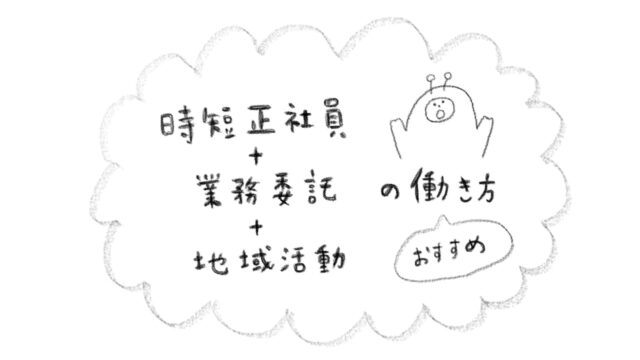 時短正社員
+
業務委託 の働き方
+
地域活動
おすすめ